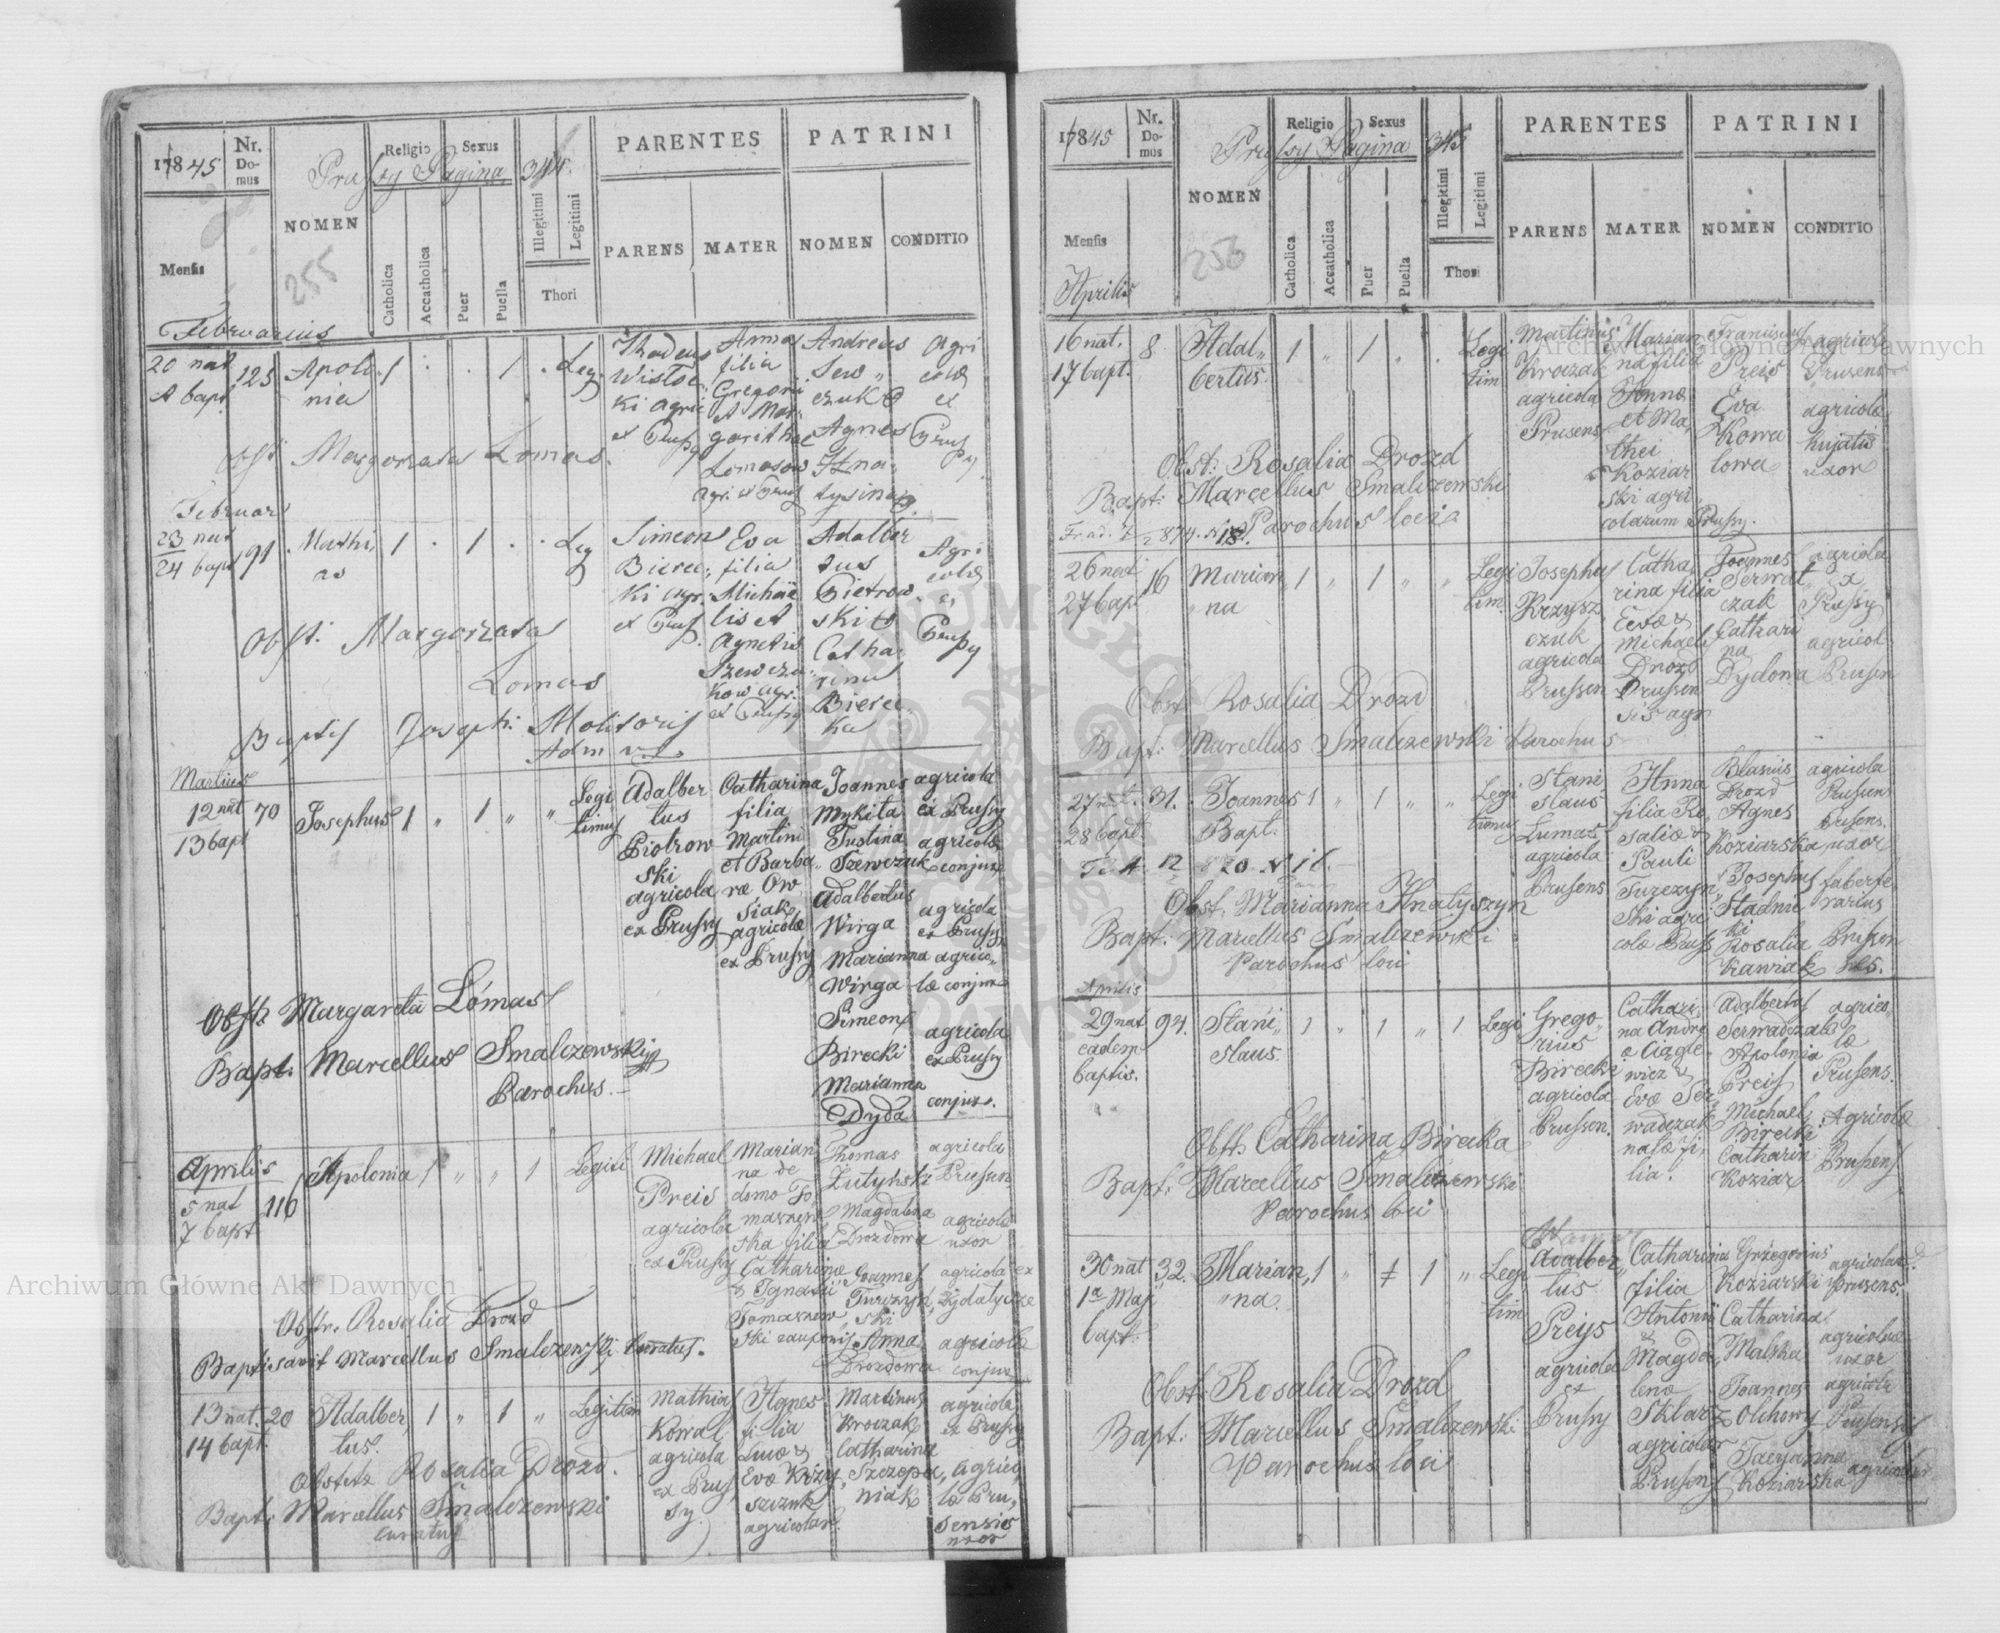 17845
Nr. Domus
Prussy Pagina 344.
Religio
Sexus
PARENTES
PATRINI
NOMEN
255
Mensis
Catholica
Accatholica
Puer
Puella
Illegitimi
Legitimi
Thori
PARENS
MATER
NOMEN
CONDITIO
Februarius
20 nat
bapt
125
Apoli
nia
1
1
Leg.
Thadeus
Wistec
ki agric
ex Prusy
Anna
filia
Gregorii
et Mar
garithae
Lomasow
Andreas
Sew
czuk &
Agnes
Hna
tysina
Agri
colae
ex
Prusy
Obst. Margorzata Lomas.
Februar
23 nat
24 bapt
191
Mathi
as
1
1
Leg
Simeon
Birec
ki agr.
ex Prus
Eva
filia
Michae
lis et
Agnetis
Szewczu
kow agr.
ex Prusy
Adalber
tus
Pietrow
ski &
Catha
rina
Birec
ka
Agri
colae
ex
Prusy
Obst. Margorzata
Lomas
Baptis Joseph: Molitoris
Adm
Martius
12 nat
13 bapt
70
Josephus
1
1
Legi
timus
Adalber
tus
Piotrow
ski
agricola
ex Prussy
Catharina
filia
Martini
et Barba
ræ Ow
siak
agricolæ
ex Prussy
Joannes
Mykita
Justina
Szewczuk
Adalbertus
Wirga
Marianna
Wirga
Simeon
Birecki
Marianna
Dyda
agricola
ex Prussy
agricolæ
conjux
agricola
ex Prussy
agrico
læ conjux
agricola
ex Prussy
conjux.
Obst. Margareta Lómas
Bapt: Marcellus Smalczewski
Parochus.
Aprilis
5 nat
7 bapt
116
Apolonia
1
1
Legiti
Michael
Preis
agricola
ex Prussy
Marian
na de
domo To
maszew
ska filia
Catharinæ
& Ignatii
Tomaszew
ski cauponis
Thomas
Zutyński
Magdalena
Drozdowa
Joannes
Turczyń
ski
Anna
Drozdowa
agricola
Prussen
agricolæ
uxor
agricola ex
Zydatycze
agricolæ
conjux
Obstr. Rosalia Drozd
Baptisavit Marcellus Smalczewski Curatus.
13 nat.
14 bapt.
20
Adalber
tus.
1
1
Legitim
Mathias
Kowal
agricola
ex Prus
sy.
Agnes
filia
Lucæ &
Evæ Krzy
szczuk
agricolar.
Martinus
Kroczak
Catharina
Szczepa
niak
agricola
ex Prussy
Agrico
læ Pru
sensis
uxor
Obstetz Rosalia Drozd.
Bapt: Marcellus Smalczewski
Curatus
17845
Nr. Domus
Prussy Pagina 345
Religio
Sexus
PARENTES
PATRINI
NOMEN
256
Mensis
Aprilis
Catholica
Accatholica
Puer
Puella
Illegitimi
Legitimi
Thori
PARENS
MATER
NOMEN
CONDITIO
16 nat.
17 bapt.
8
Adal
bertus.
1
1
Legi
tim
Martinus
Kroczak
agricola
Prusens
Marian
na filia
Annæ
et Ma
thei
Koziar
ski agri
colarum Prussy.
Franciscus
Preis
Eva
Kowa
lowa
agricola
Prusens
agricolæ
hujatis
uxor
Obst: Rosalia Drozd
Bapt: Marcellus Smalczewski
Parochus loci
26 nat
27 bapt
16
Marian
na
1
1
Legi
tim.
Josephus
Krzysz
czuk
agricola
Prussen
Catha
rina filia
Evæ &
Michaelis
Drozd
Prussen
sis agr
Joannes
Serwat
czak
Cathari
na
Dydowa
agricola
ex
Prussy
agricol
Prussen
Obst Rosalia Drozd
Bapt: Marcellus Smalczewski Parochus
27 nat.
28 bapt.
31.
Joannes
Bapt.
1
1
Legi
timus
Stani
slaus
Lumas
agricola
Prusens
Anna
filia Ro
saliæ &
Pauli
Turczyn
ski agri
colæ Pruss
Blasius
Drozd
Agnes
Koziarska
Josephus
Stadnic
ki
Rosalia
Kawiak
agricola
Prusens
Prusens.
uxor
faberfe
rarius
Prussen
Obst. Marianna Hnatyszyn
Bapt. Marcellus Smalczewski
Parochus loci
Aprilis
29 nat
eadem
baptis.
94.
Stani
slaus.
1
1
1
Legi
Grego
rius
Birecki
agricola
Prussen.
Cathari
na Andre
æ Ciagle
wicz &
Evæ Ser
wadczak
natæ fi
lia.
Adalbertus
Serwadczak
Apolonia
Preis
Michael
Birecki
Catharin
Koziar
agrico
læ
Prusens.
Agricolæ
Prusens
Obst. Catharina Birecka
Bapt: Marcellus Smalczewski
Parochus loci
30 nat
1a Maji
bapt:
32.
Marian
na.
1
1
Legi
tim
Adalber
tus
Preys
agricola
ex
Prussy
Catharina
filia
Antonii
&
Magda
lenæ
Sklarz
agricolar
Prusens
Grzegorius
Koziarski
Catharina
Malska
Joannes
Olchowy
Tacyanna
Koziarska
agricola
Prusens.
agricolæ
uxor
agricola
Prusensis
Obst: Rosalia Drozd
Bapt: Marcellus Smalczewski
Parochus loci
Archiwum Główne Akt Dawnych
Archiwum Główne Akt Dawnych